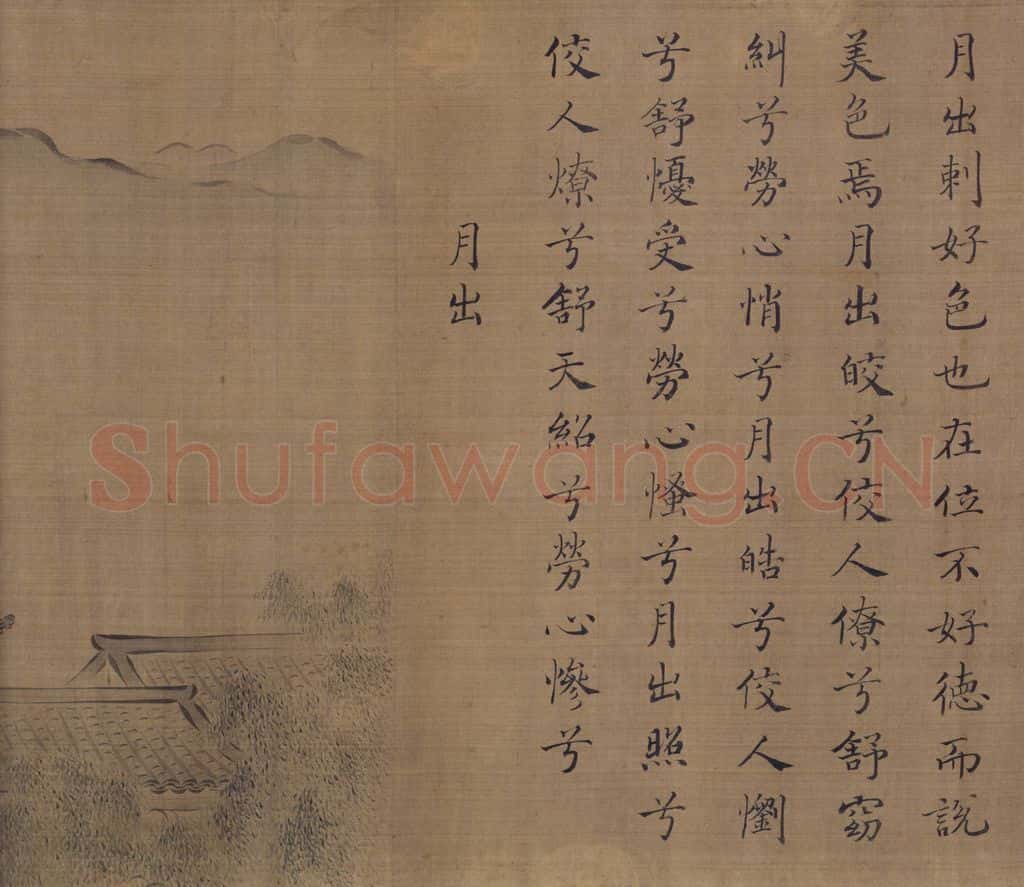 月出刺好色也在位不好德而說
美色焉月出皎兮佼人僚兮舒窈
糾兮勞心悄兮月出皓兮佼人懰
兮舒懮受兮勞心慅兮月出照兮
佼人燎兮舒天紹兮勞心慘兮
月出
Shufawang.CN